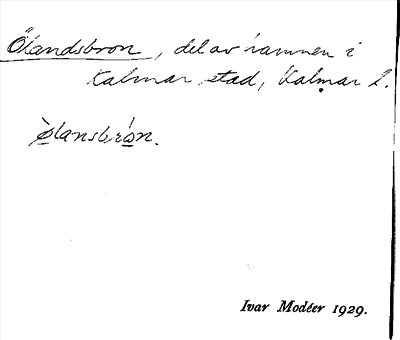 Ölandsbron, del av hamnen i
Kalmar stad, Kalmar l.
ø̀lansbrón.
Ivar Modéer 1929.